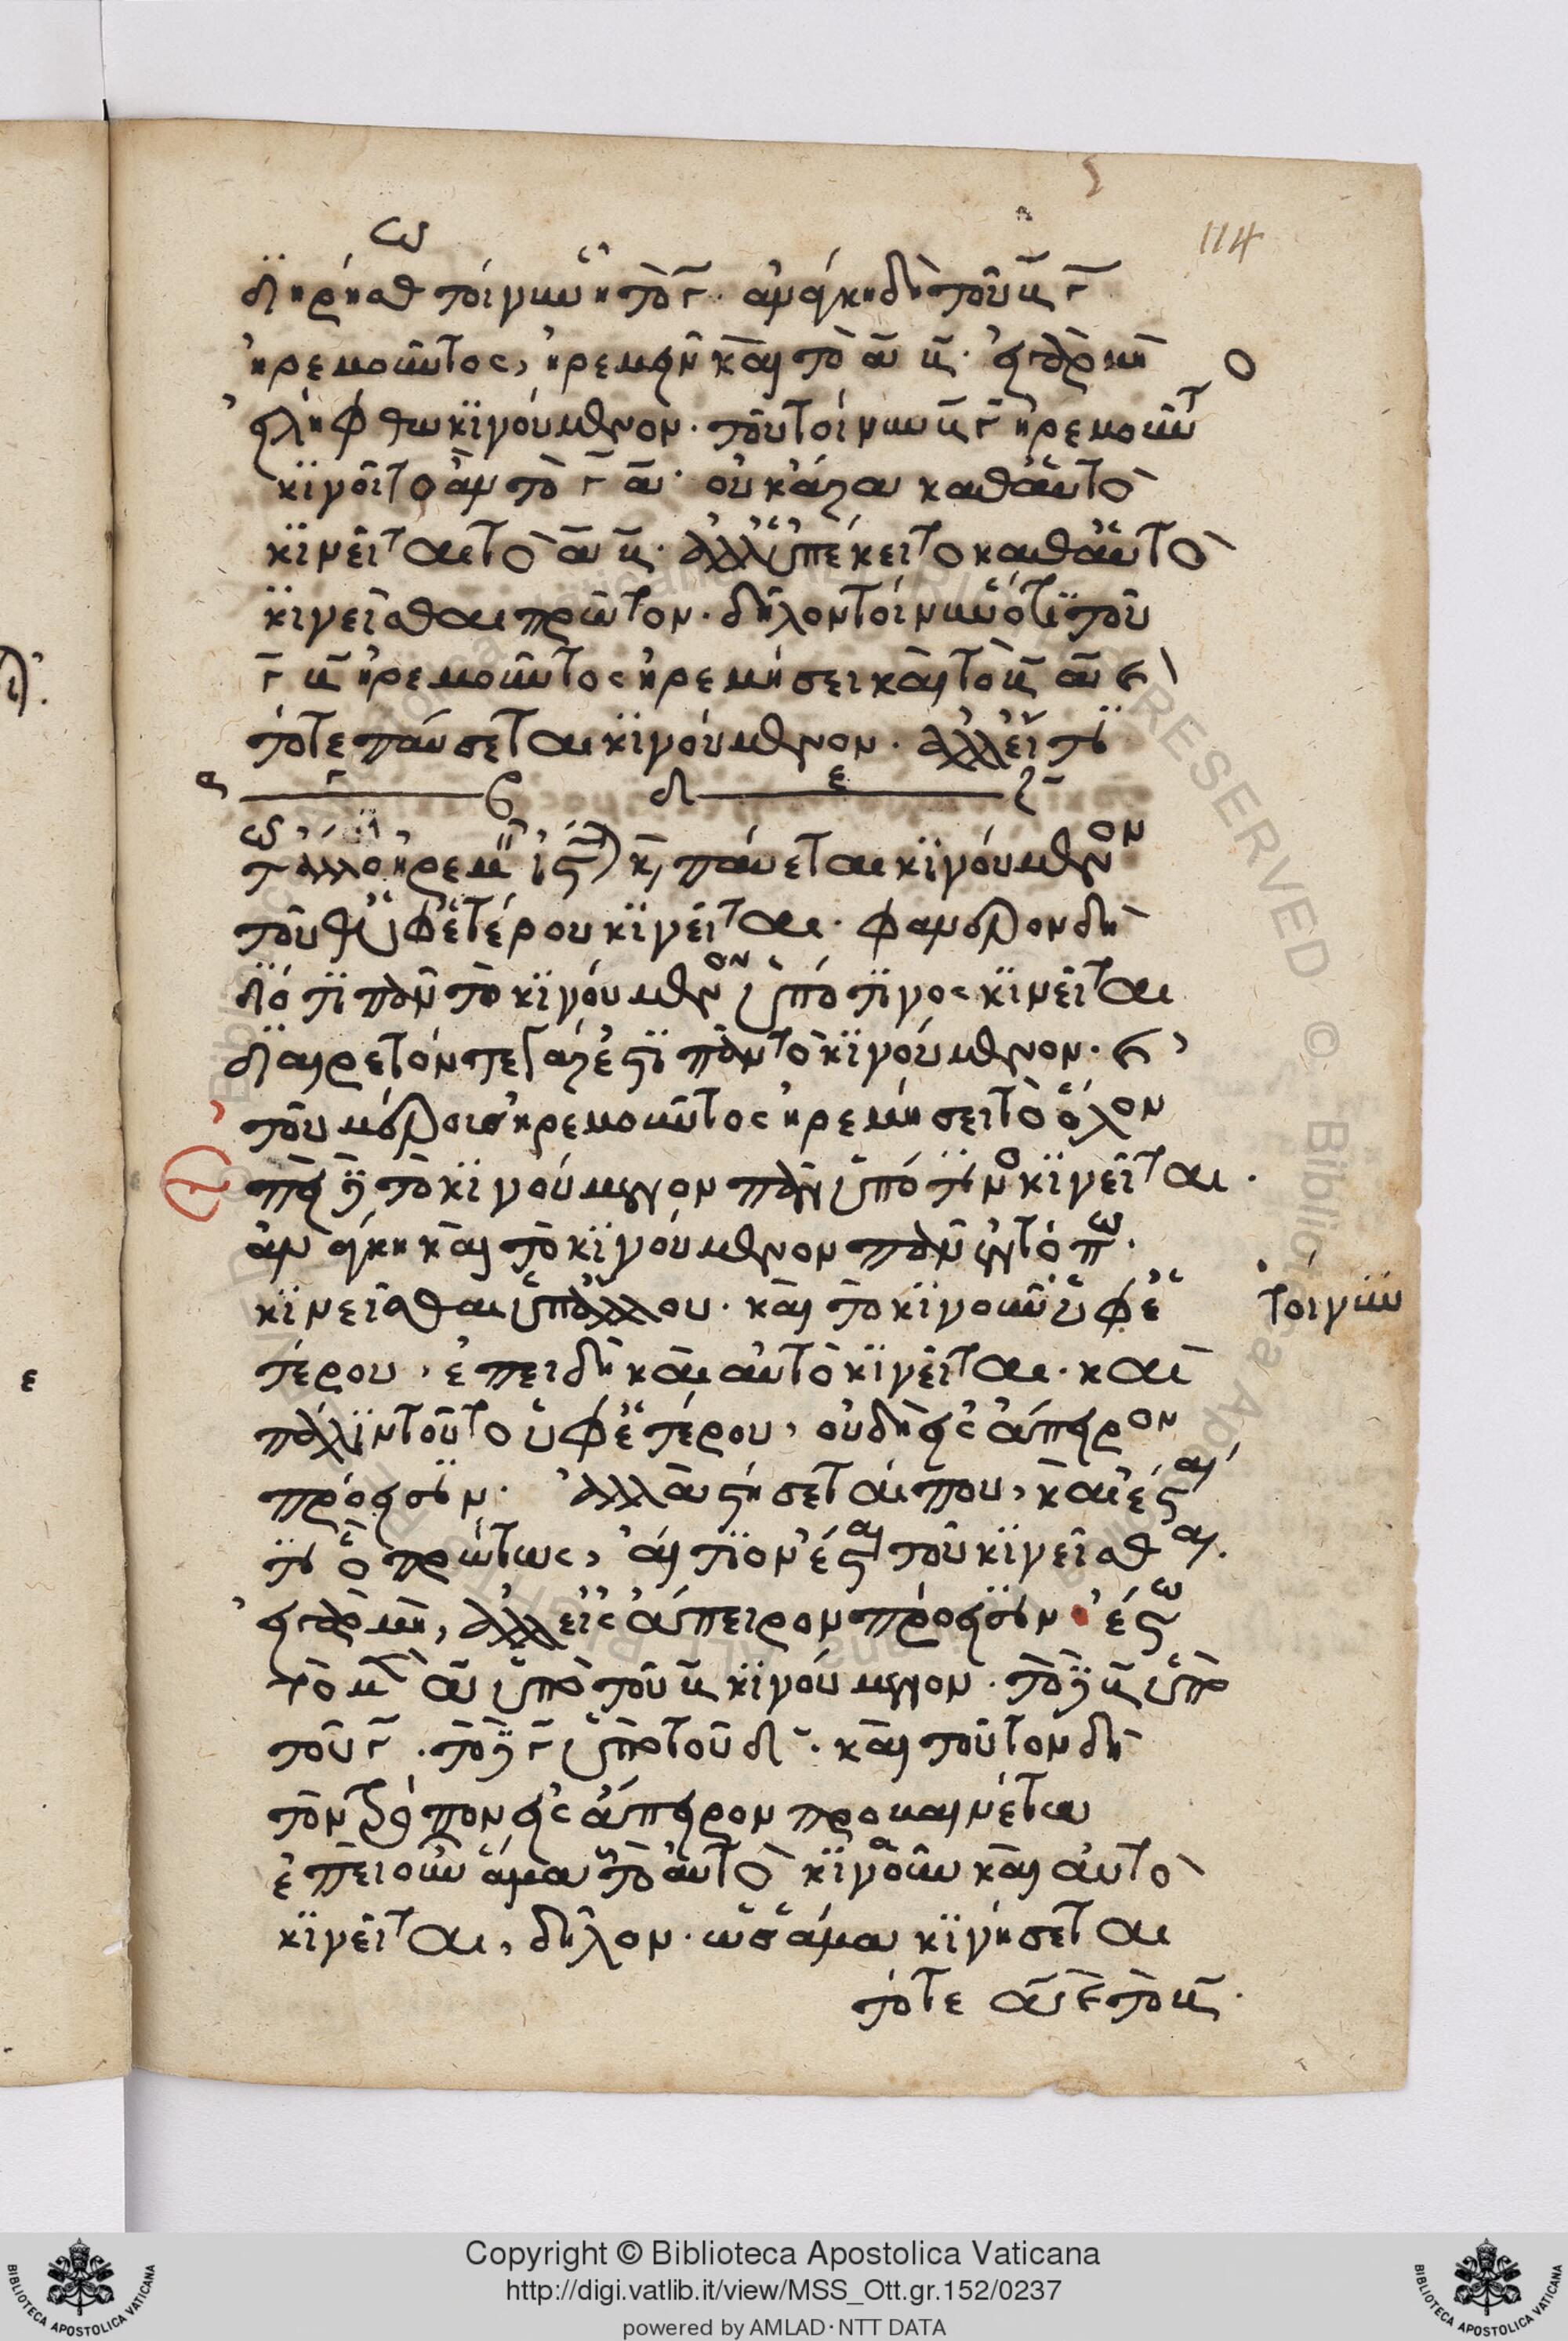 114
διῃρήσθω τοίνυν ἢ τὸ γ. ἀνάγκη δὴ τοῦ β γ
ἠρεμοῦντος, ἠρεμεῖν καὶ τὸ α β. εἰ γὰρ μὴ
εἰλήφθω κινούμενον. τοῦ τοίνυν β γ ἠρεμοῦντ
κινοῖτο ἂν τὸ γ α. οὐκ ἄρα καθ' αὑτὸ
κινεῖται τὸ α β. ἀλλ' ὑπέκειτο καθ' αὑτὸ
κινεῖσθαι πρῶτον. δῆλον τοίνυν ὅτι τοῦ
γ β ἠρεμοῦντος ἠρεμήσει καὶ τὸ β α καὶ
τότε παύσεται κινούμενον. ἀλλ' εἴ τι
α γ β δ ε ζ
τῷ ἄλλο ἠρεμεῖν ἵσταται καὶ παύεται κινούμενον
τοῦθ' ὑφ' ἑτέρου κινεῖται. φανερὸν δὴ
διότι πᾶν τὸ κινούμενον ὑπό τινος κινεῖται
διαιρετόν τε γάρ ἐστι πᾶν τὸ κινούμενον. καὶ
τοῦ μέρους ἠρεμοῦντος ἠρεμήσει τὸ ὅλον
ἐπεὶ δὲ τὸ κινούμενον πᾶν ὑπό τινος κινεῖται.
ἀνάγκη καὶ τὸ κινούμενον πᾶν ἐν τόπῳ.
τοίνυν
κινεῖσθαι ὑπ' ἄλλου. καὶ τὸ κινοῦν ὑφ' ἑ
τέρου, ἐπειδὴ καὶ αὐτὸ κινεῖται. καὶ
πάλιν τοῦτο ὑφ' ἑτέρου, οὐ δὴ εἰς ἄπειρον
πρόεισιν. ἀλλὰ στήσεταί που, καὶ ἔσται
τι ὃ πρώτως, αἴτιον ἔσται τοῦ κινεῖσθαι.
εἰ γὰρ μή, ἀλλ' εἰς ἄπειρον πρόεισιν. ἔστω
τὸ μὲν α ὑπὸ τοῦ β κινούμενον. τὸ δὲ β ὑπὸ
τοῦ γ. τὸ δὲ γ ὑπὸ τοῦ δ. καὶ τοῦτον δὴ
τὸν τρόπον εἰς ἄπειρον προβαινέτω
ἐπεὶ οὖν ἅμα τὸ αὐτὸ κινοῦν καὶ αὐτὸ
κινεῖται, δῆλον. ὡς ἅμα κινήσεται
τό τε α καὶ τὸ β.
Copyright © Biblioteca Apostolica Vaticana
http://digi.vatlib.it/view/MSS_Ott.gr.152/0237
powered by AMLAD·NTT DATA